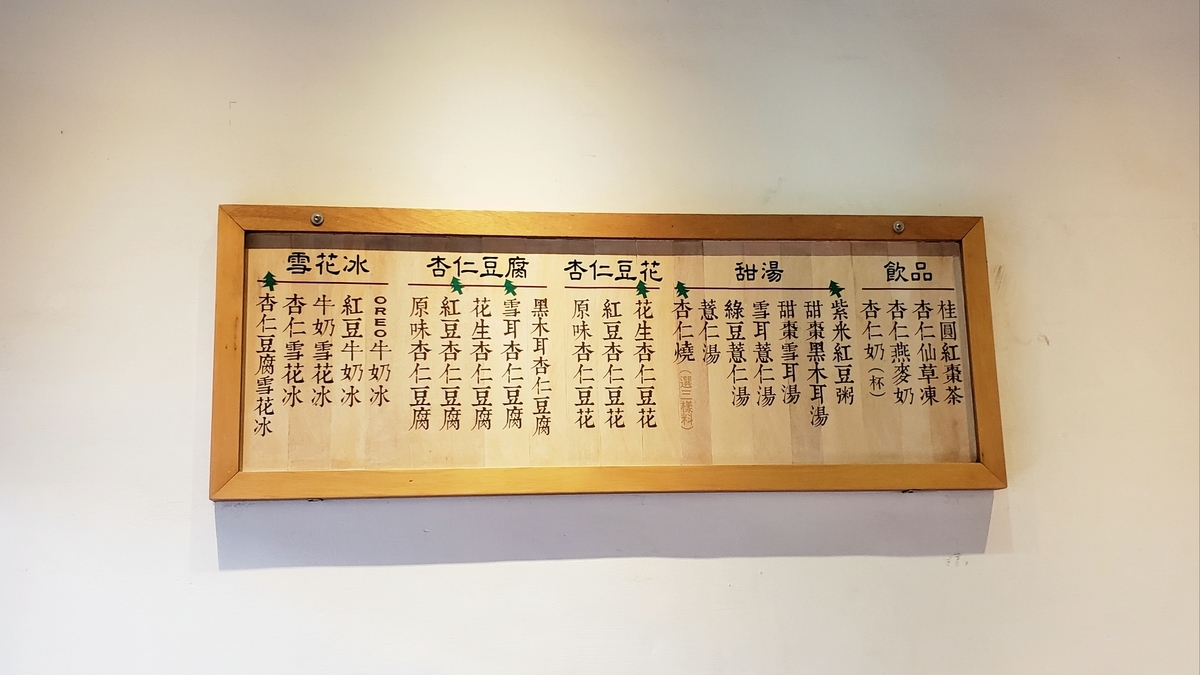 飲品
桂圓紅棗茶
杏仁仙草凍
杏仁燕麥奶
杏仁奶(杯)
甜湯
紫米紅豆粥
甜棗黑木耳湯
甜棗雪耳湯
雪耳薏仁湯
綠豆薏仁湯
薏仁湯
杏仁燒(選三樣料)
杏仁豆花
花生杏仁豆花
紅豆杏仁豆花
原味杏仁豆花
杏仁豆腐
黑木耳杏仁豆腐
雪耳杏仁豆腐
花生杏仁豆腐
紅豆杏仁豆腐
原味杏仁豆腐
雪花冰
OREO牛奶冰
紅豆牛奶冰
牛奶雪花冰
杏仁雪花冰
杏仁豆腐雪花冰